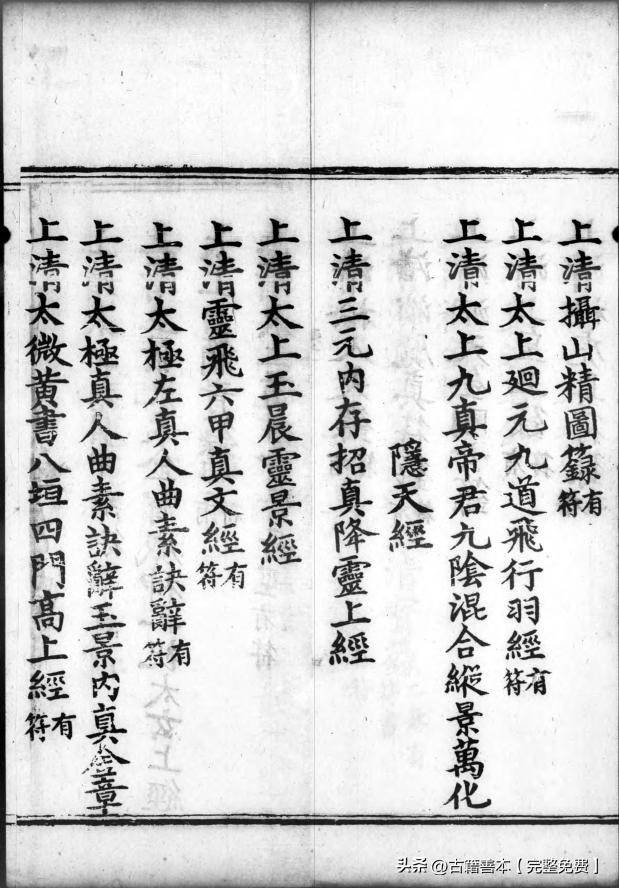 上清攝山精圖籙有符
上清太上廻元九道飛行羽經有符
上清太上九真帝君九陰混合縱景萬化
隱天經
上清三元內存招真降靈上經
上清太上玉晨靈景經
上清靈飛六甲真文經有符
上清太極左真人曲素訣辭有符
上清太極真人曲素訣辭玉景內真金章
上清太微黄書八垣四門高上經有符
头条 @古籍善本【完整免费】